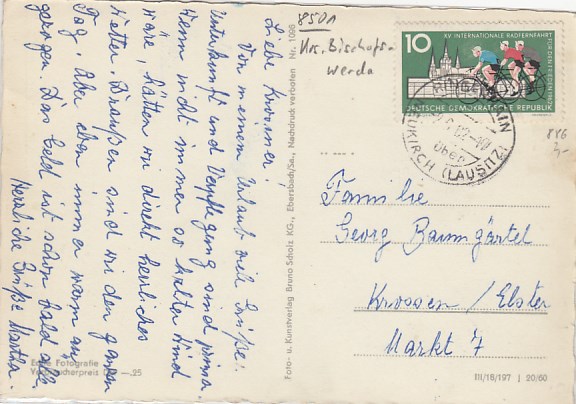 Liebe Krossner!
Von meinem Urlaub viele Grüße!
Unterkunft und Verpflegung sind prima.
Wenn nicht immer so kalter Wind
wäre, hätten wir direkt herrliches
Wetter. Draußen sind wir den ganzen
Tag. Aber eben immer warm an-
gezogen. Das Geld ist schon bald alle
Herzliche Grüße Martha.
Echte Fotografie
Verbraucherpreis —.25
Foto- u. Kunstverlag Bruno Scholz KG., Ebersbach/Sa., Nachdruck verboten Nr. 1098
8501
Krs. Bischofs-
werda
10
XV INTERNATIONALE RADFERNFAHRT
FÜR DEN FRIEDEN 1962
DEUTSCHE DEMOKRATISCHE REPUBLIK
über
NEUKIRCH (LAUSITZ)
Familie
Georg Baumgärtel
Krossen / Elster
Markt 7
III/18/197 | 20/60